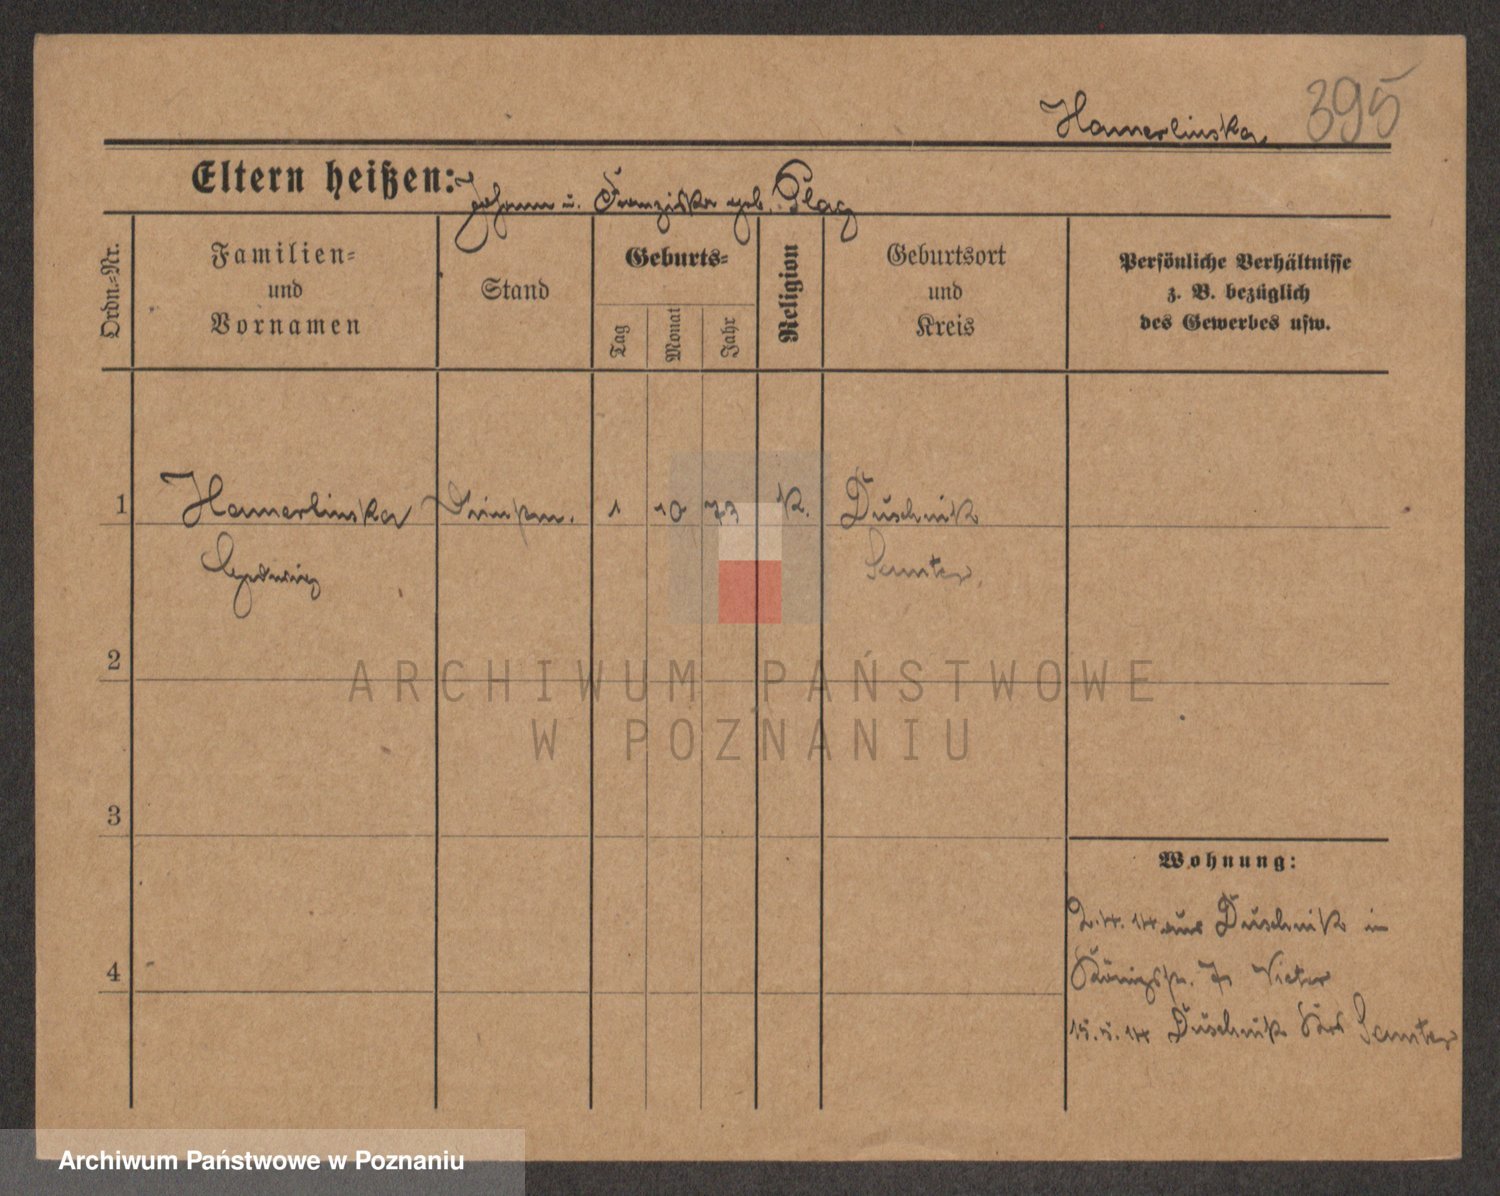 Hamerlinska 395
Eltern heißen: Johann u. Franziska geb. Plag
Ordn.-Nr.
Familien-
und
Vornamen
Stand
Geburts-
Tag
Monat
Jahr
Religion
Geburtsort
und
Kreis
Persönliche Verhältnisse
z. B. bezüglich
des Gewerbes usw.
1 Hamerlinska 1 10 73 K. Duschnik
Hedwig Samter
2
3
4
Wohnung:
2.4.14 aus Duschnik in
Königstr. 7
15.5.14 Duschnik Krs Samter
ARCHIWUM PAŃSTWOWE
W POZNANIU
Archiwum Państwowe w Poznaniu